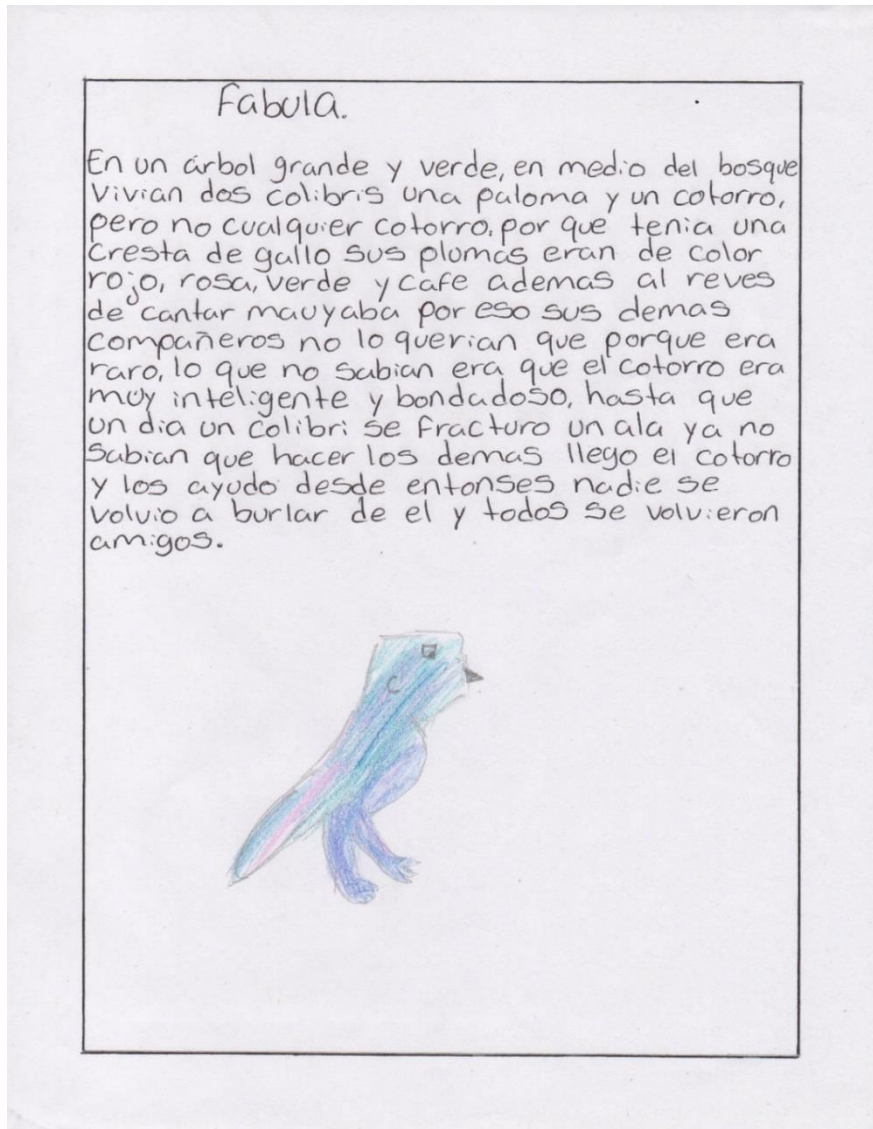 Fabula.
En un árbol grande y verde, en medio del bosque
vivian dos colibris una paloma y un cotorro,
pero no cualquier cotorro, por que tenia una
cresta de gallo sus plumas eran de color
rojo, rosa, verde y cafe ademas al reves
de cantar mauyaba por eso sus demas
compañeros no lo querian que porque era
raro, lo que no sabian era que el cotorro era
muy inteligente y bondadoso, hasta que
un dia un colibri se fracturo un ala ya no
sabian que hacer los demas llego el cotorro
y los ayudo desde entonses nadie se
volvio a burlar de el y todos se volvieron
amigos.